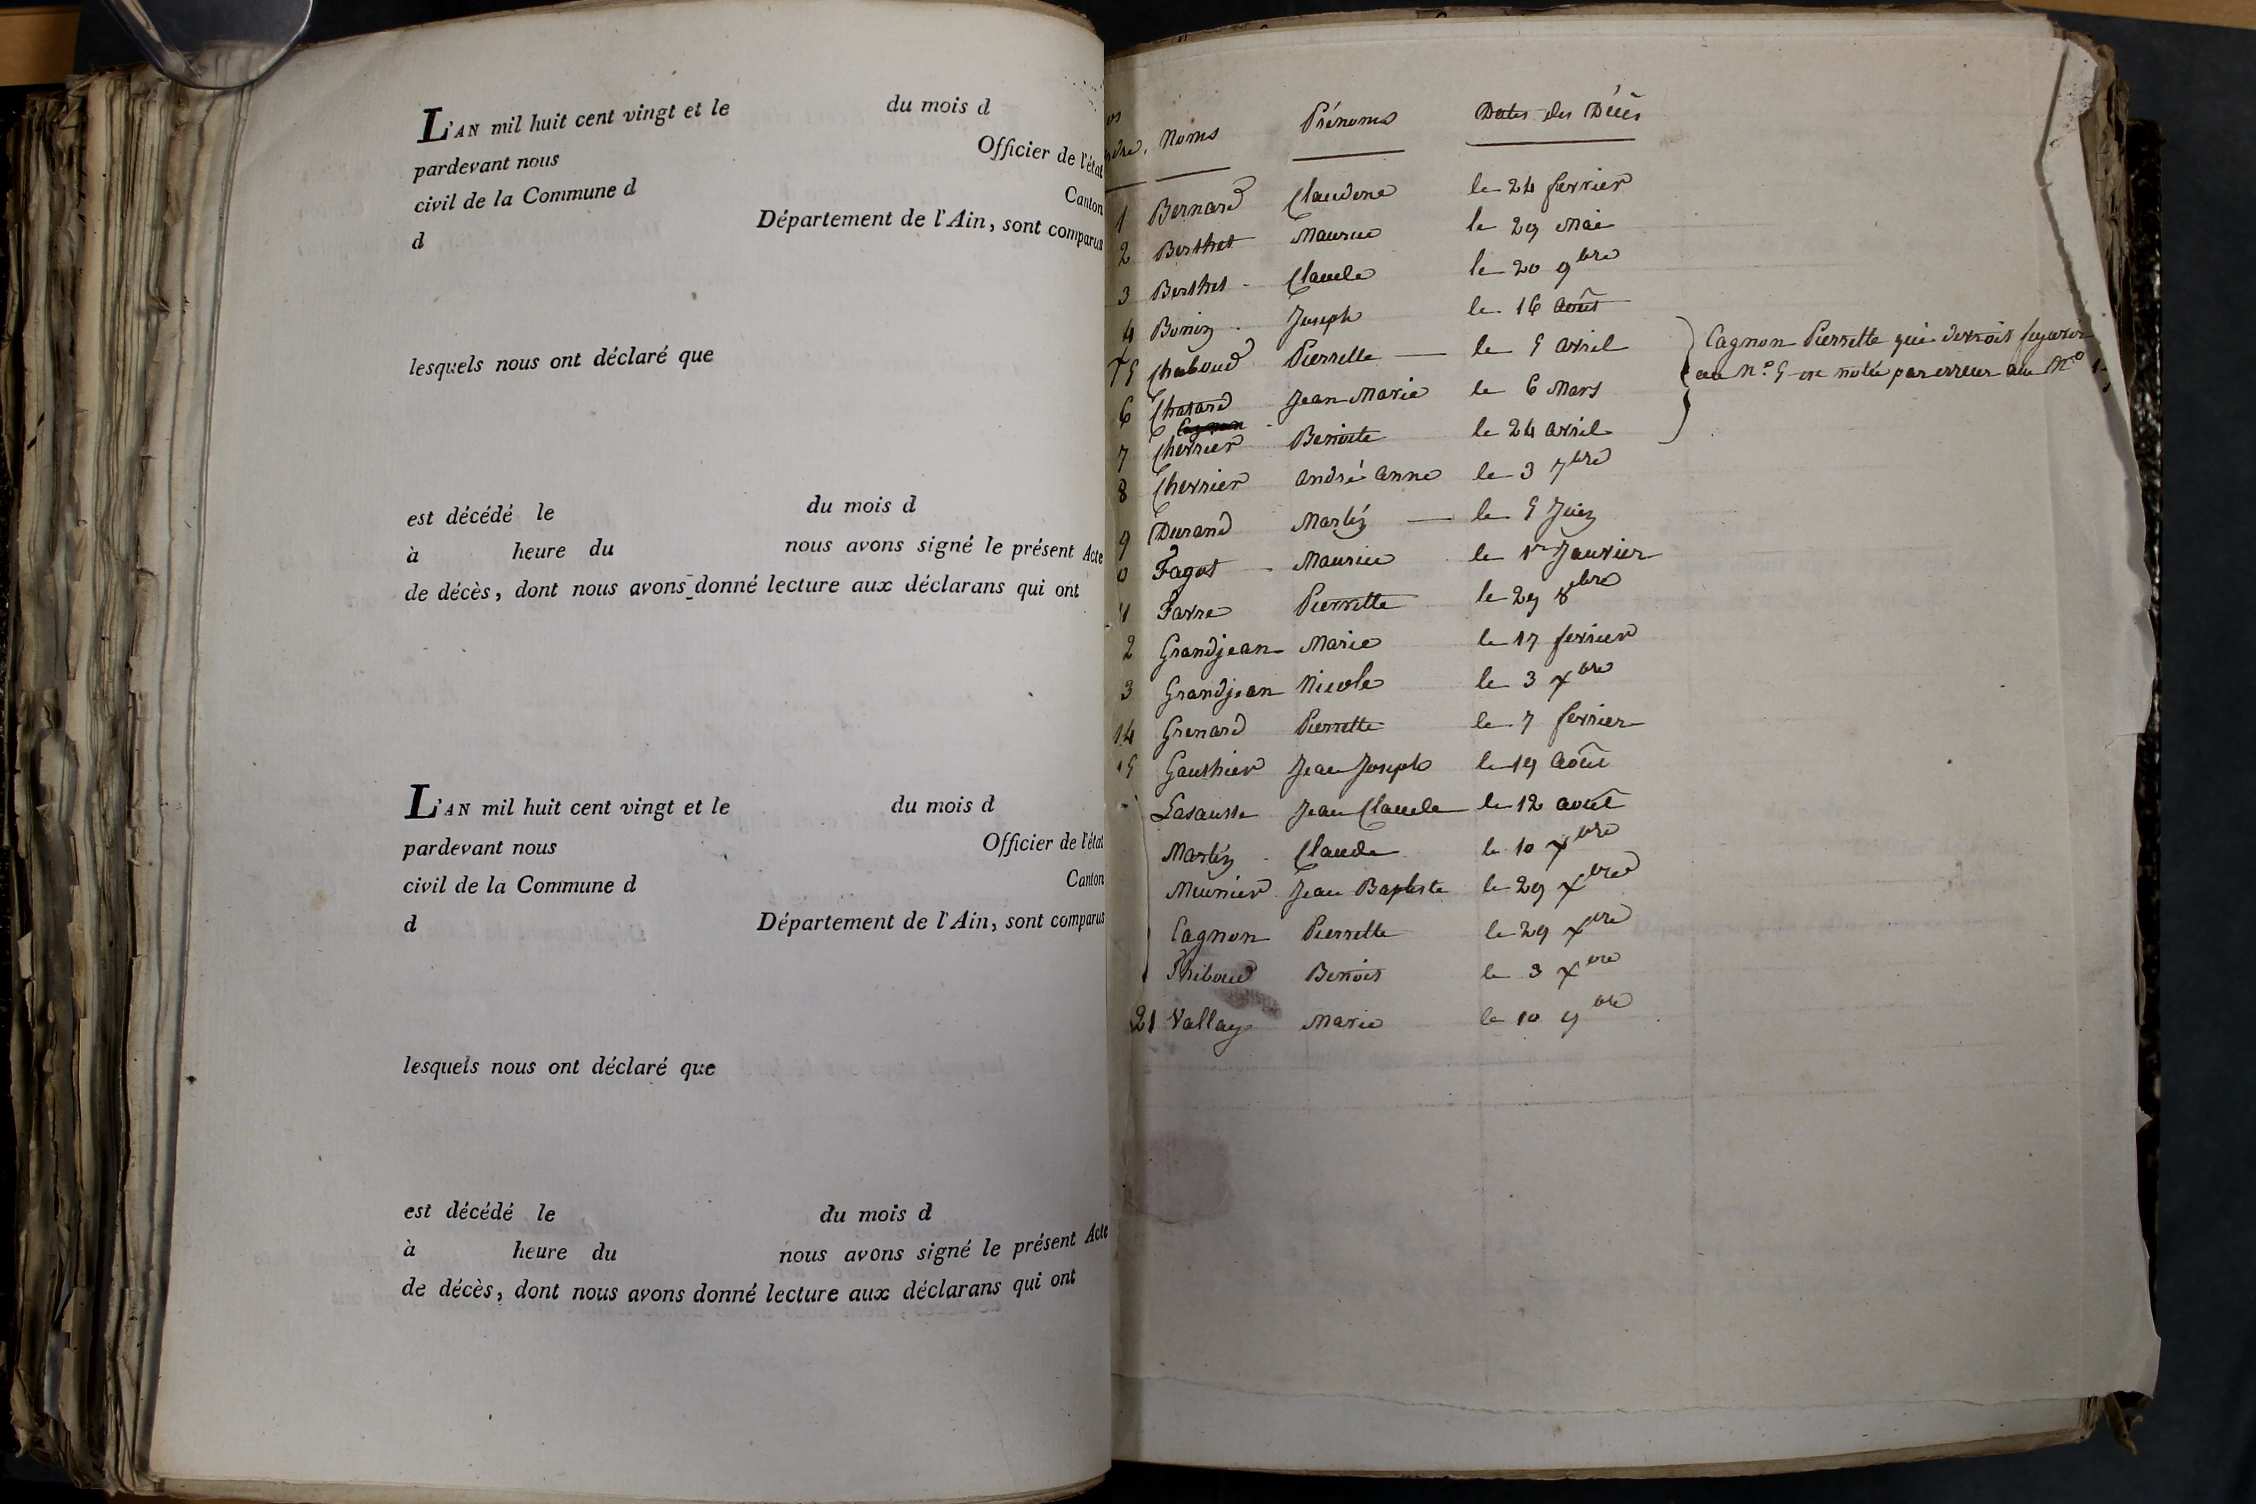 L'AN mil huit cent vingt et le du mois d
pardevant nous Officier de l'état
civil de la Commune d Canton
d Département de l'Ain, sont comparus
lesquels nous ont déclaré que
est décédé le du mois d
à heure du nous avons signé le présent Acte
de décès, dont nous avons donné lecture aux déclarans qui ont
L'AN mil huit cent vingt et le du mois d
pardevant nous Officier de l'état
civil de la Commune d Canton
d Département de l'Ain, sont comparus
lesquels nous ont déclaré que
est décédé le du mois d
à heure du nous avons signé le présent Acte
de décès, dont nous avons donné lecture aux déclarans qui ont
os
rdre. Noms Prénoms Dates des Décès
1 Bernard Claudine le 24 fevrier
2 Berthet Maurice le 29 Mai
3 Berthet Claude le 20 9bre
4 Bonin Joseph le 16 août
5 Chaboud Pierrette le 5 avril
6 Chatard Jean Marie le 6 Mars
7 Chevrier Benoite le 24 avril
8 Chevrier andré anne le 3 7bre
9 Durand Martin le 5 Juin
0 Fagot Maurice le 1er Janvier
1 Favre Pierrette le 29 8bre
2 Grandjean Marie le 17 fevrier
3 Grandjean Nicole le 3 xbre
14 Grenard Pierrette le 7 fevrier
15 Gauthier Jean Joseph le 19 août
Lasausse Jean Claude le 12 août
Martin Claude le 10 xbre
Meunier Jean Baptiste le 29 xbre
Cagnon Pierrette le 29 xbre
Thiboud Benoit le 3 xbre
21 Vallay Marie le 10 9bre
Cagnon Pierrette qui devroit figurer
au N.º 5 est notée par erreur au Nº